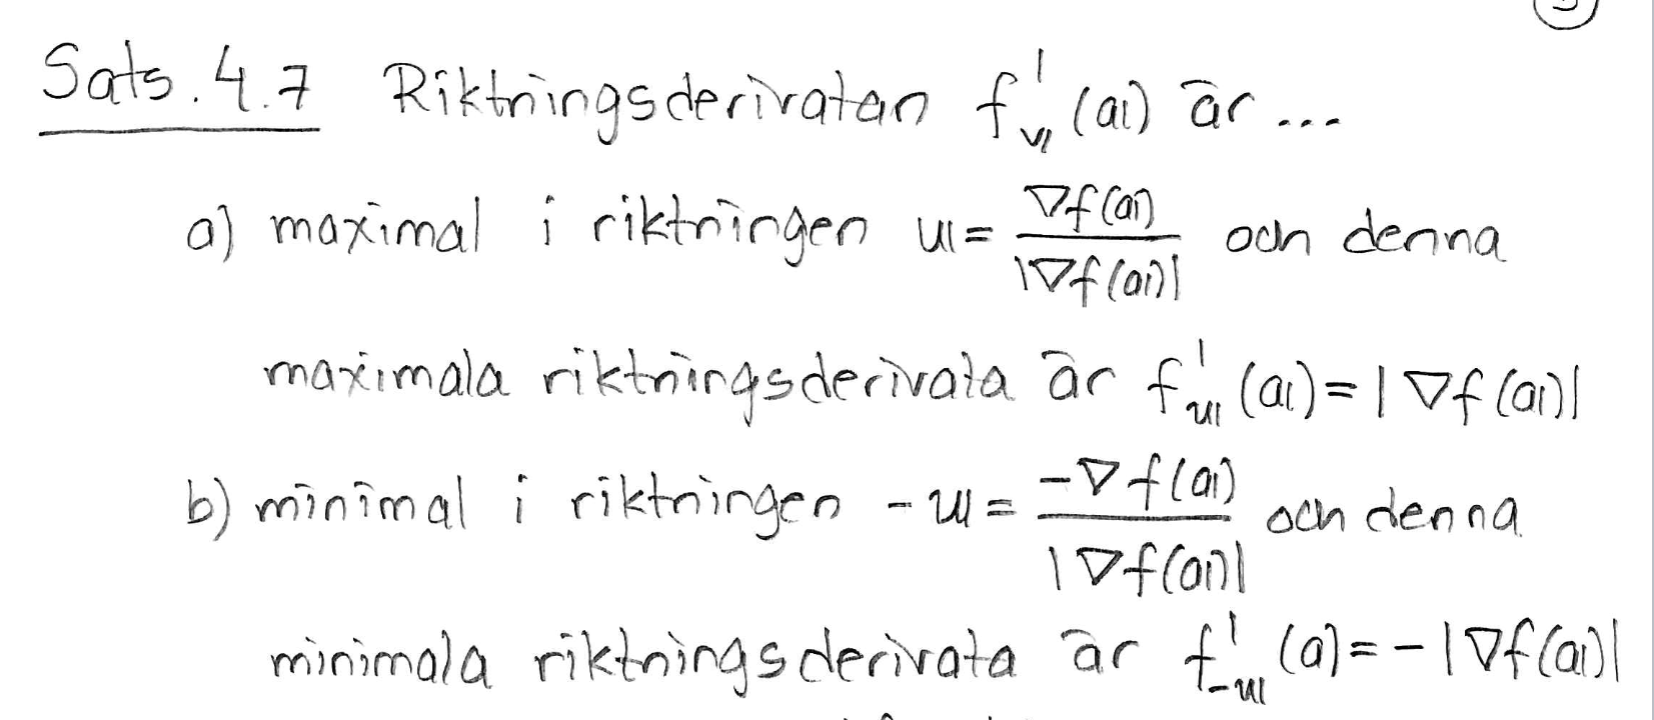 Sats. 4.7 Riktningsderivatan f'_𝕧(𝕒) är ...
a) maximal i riktningen 𝕦 = ∇f(𝕒) / |∇f(𝕒)| och denna
maximala riktningsderivata är f'_𝕦(𝕒) = |∇f(𝕒)|
b) minimal i riktningen -𝕦 = -∇f(𝕒) / |∇f(𝕒)| och denna
minimala riktningsderivata är f'_-𝕦(a) = -|∇f(𝕒)|